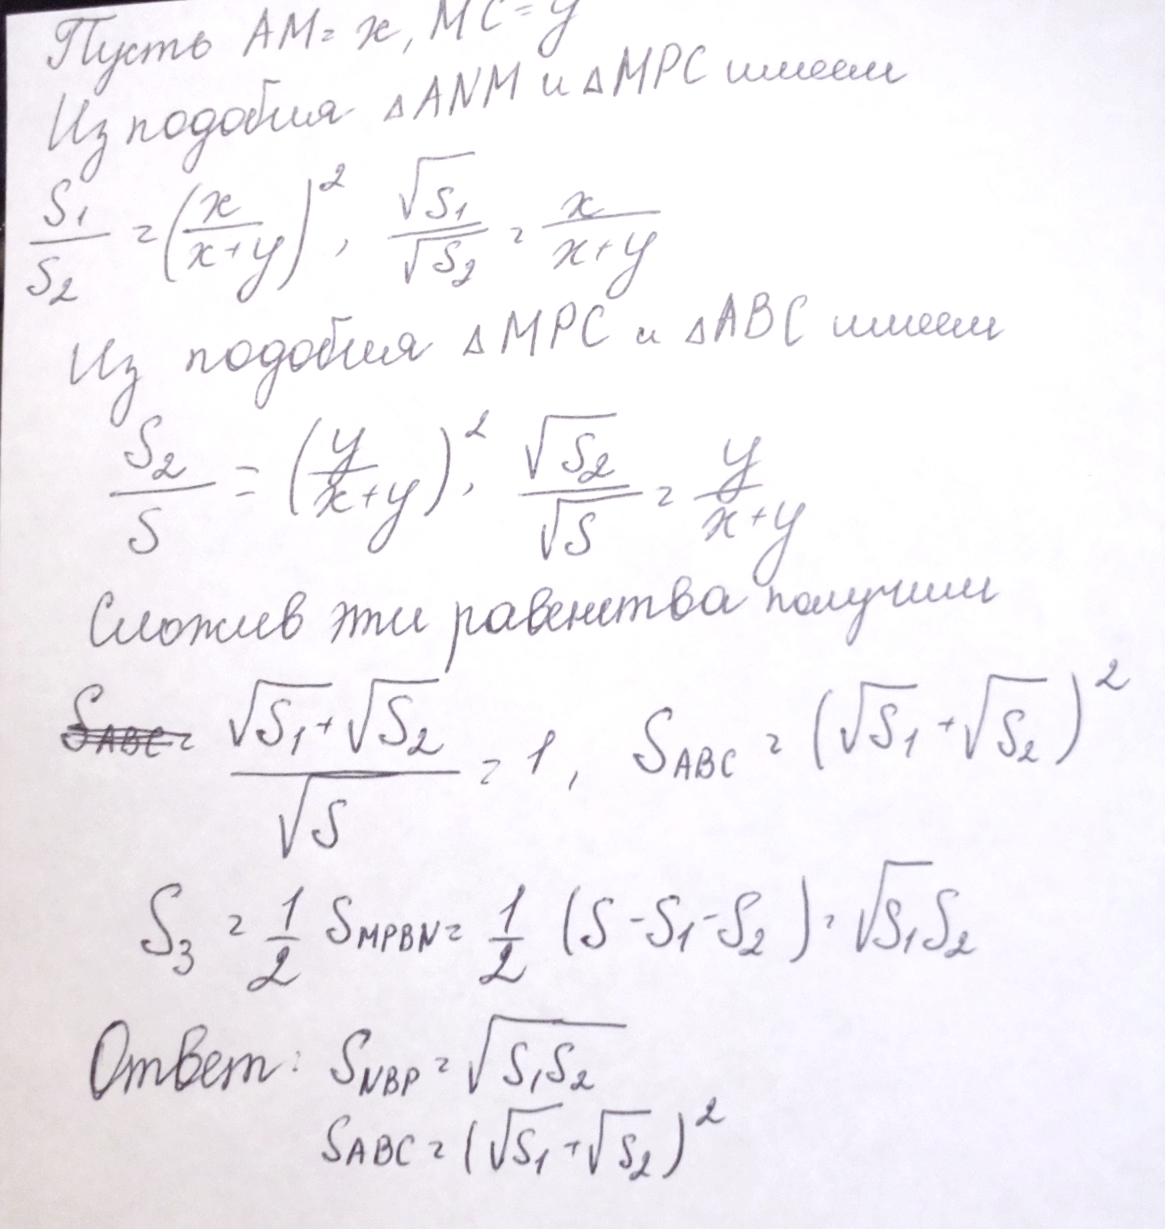 Пусть AM = x, MC = y
Из подобия △ANM и △MPC имеем
S₁/S₂ = (x/(x+y))², √S₁/√S₂ = x/(x+y)
Из подобия △MPC и △ABC имеем
S₂/S = (y/(x+y))², √S₂/√S = y/(x+y)
Сложив эти равенства получим
(√S₁+√S₂)/√S = 1, S_ABC = (√S₁+√S₂)²
S₃ = 1/2 S_MPBN = 1/2 (S-S₁-S₂) = √S₁S₂
Ответ: S_NBP = √S₁S₂
S_ABC = (√S₁+√S₂)²